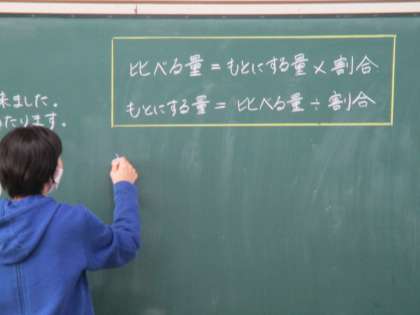 比べる量=もとにする量×割合
もとにする量=比べる量÷割合
来ました。
たります。